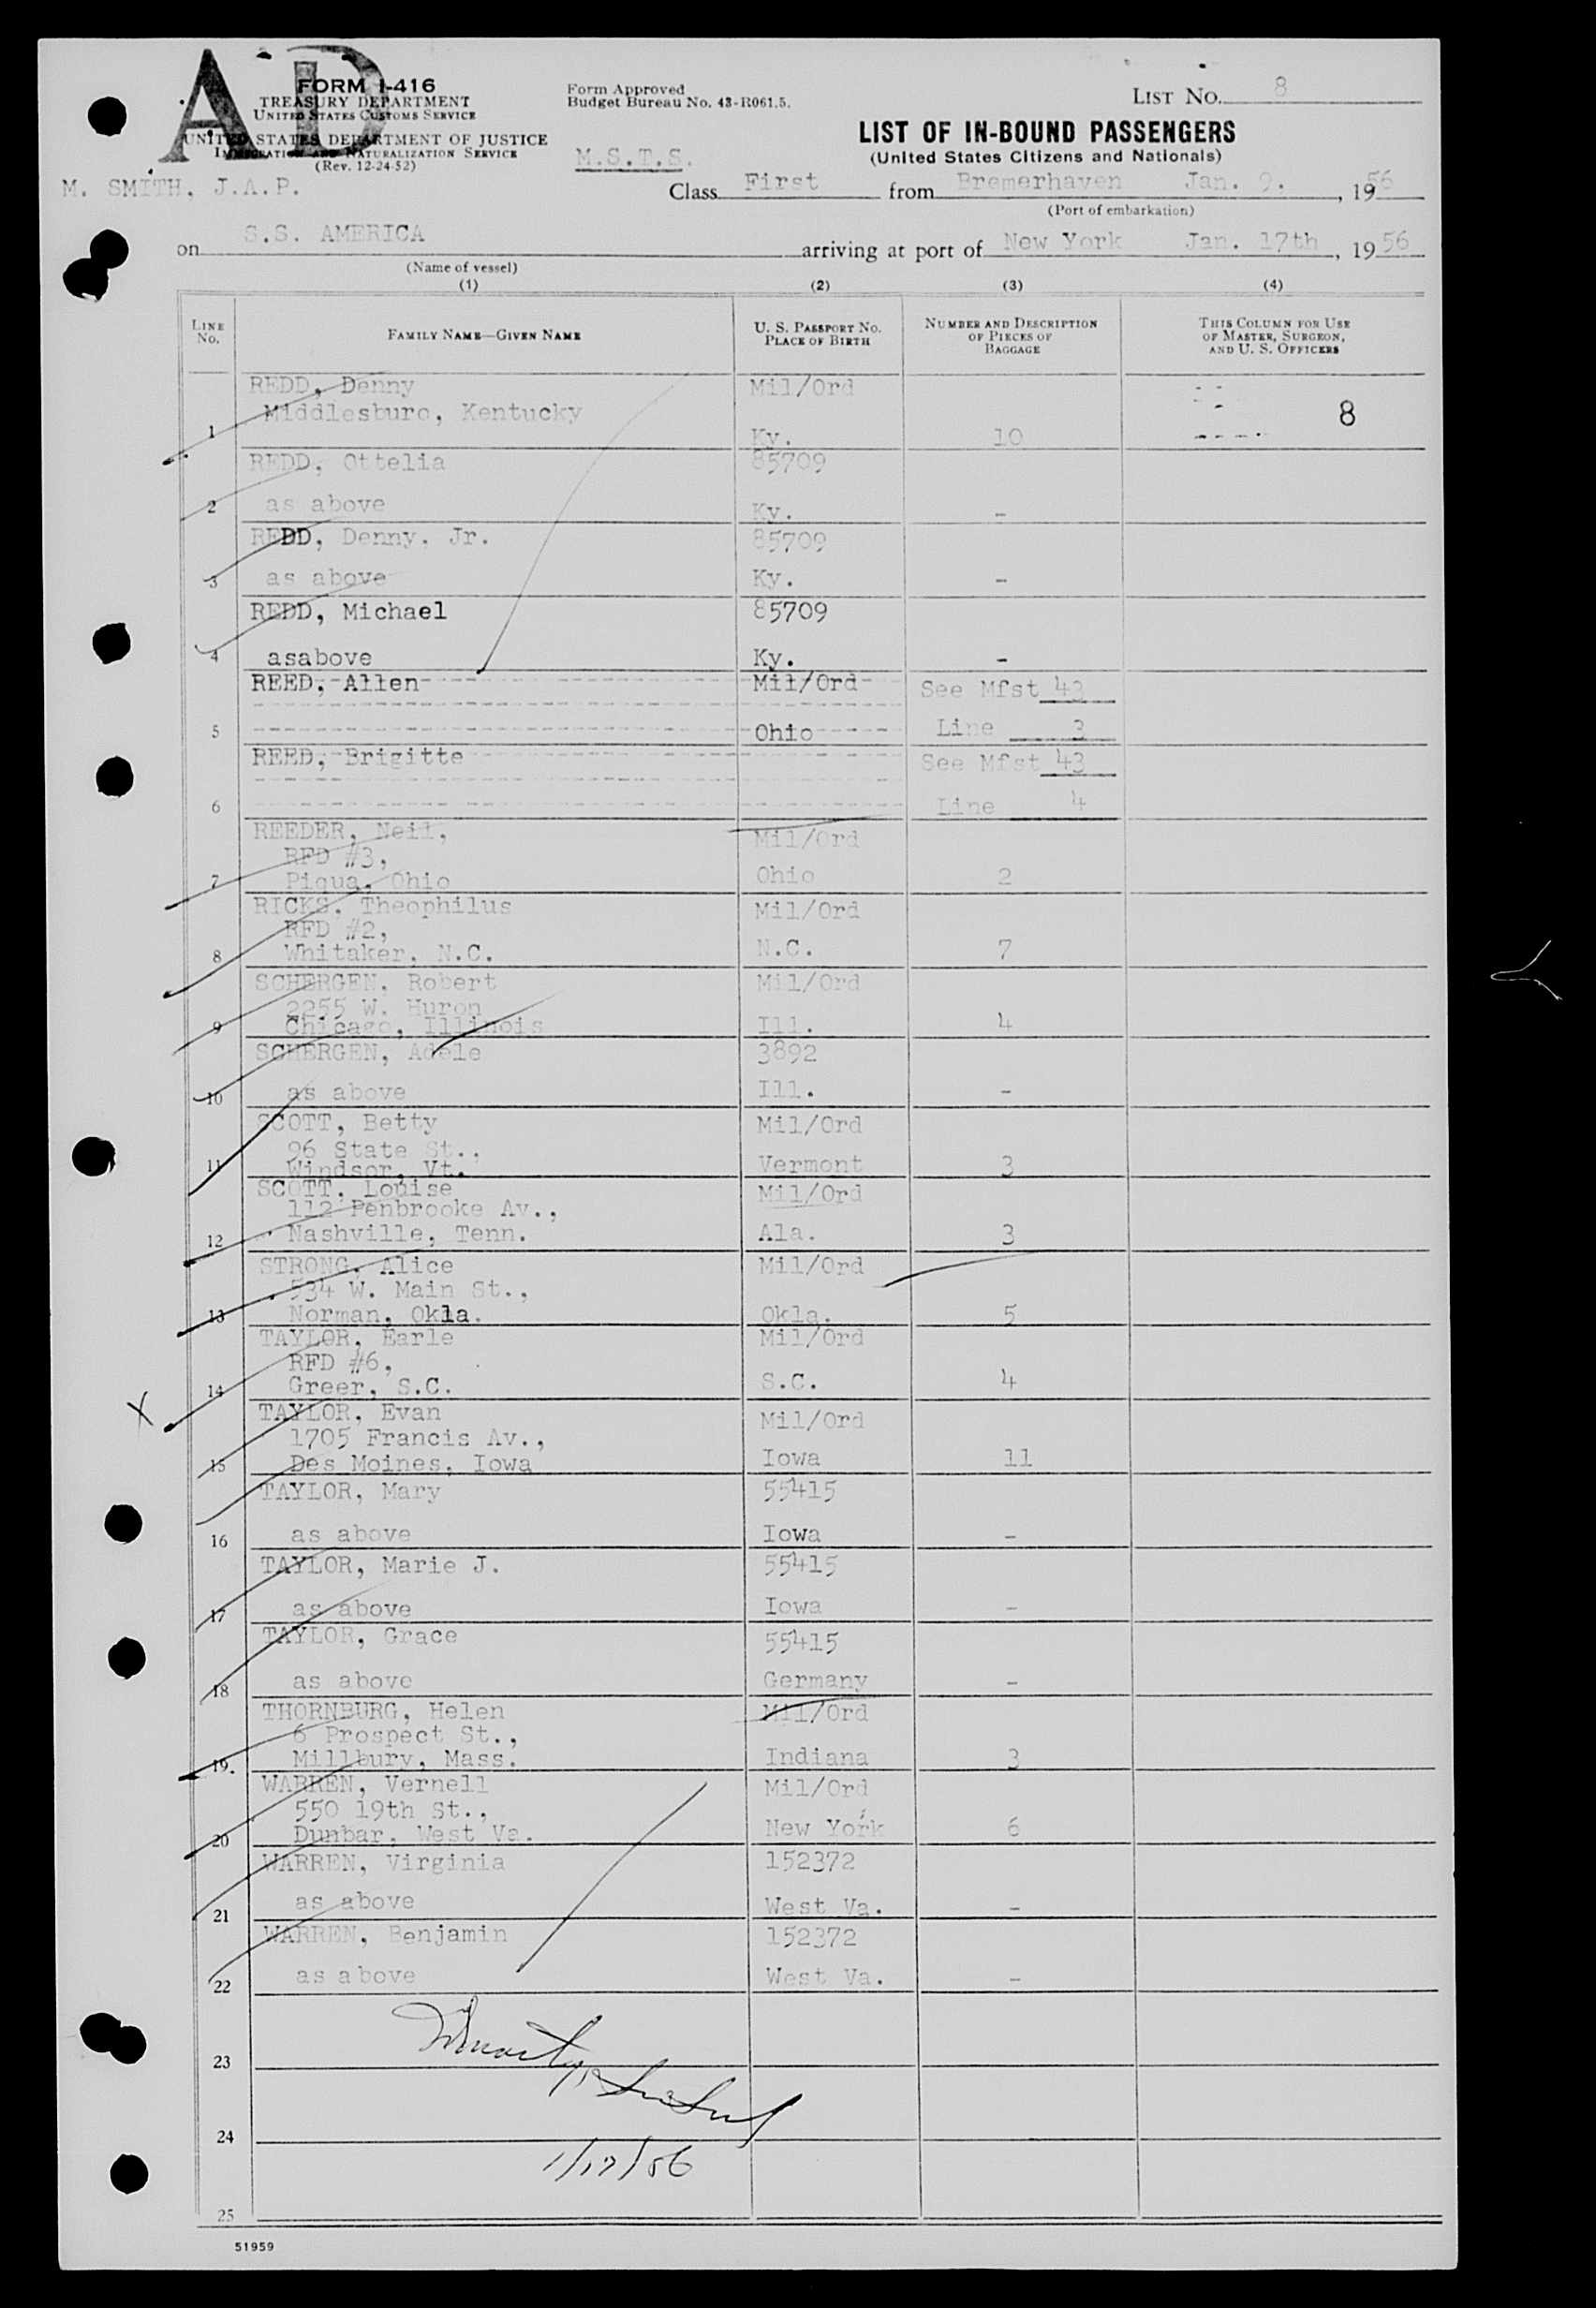 AD
FORM I-416
TREASURY DEPARTMENT
UNITED STATES CUSTOMS SERVICE
UNITED STATES DEPARTMENT OF JUSTICE
IMMIGRATION AND NATURALIZATION SERVICE
(Rev. 12-24-52)
Form Approved
Budget Bureau No. 43-R061.5.
LIST NO. 8
LIST OF IN-BOUND PASSENGERS
(United States Citizens and Nationals)
M.S.T.S.
M. SMITH, J.A.P.
Class First from Bremerhaven Jan. 9, 1956
(Port of embarkation)
on S.S. AMERICA arriving at port of New York Jan. 17th, 1956
(Name of vessel)
(1) (2) (3) (4)
LINE NO. FAMILY NAME—GIVEN NAME U. S. PASSPORT NO. PLACE OF BIRTH NUMBER AND DESCRIPTION OF PIECES OF BAGGAGE THIS COLUMN FOR USE OF MASTER, SURGEON, AND U. S. OFFICERS
REDD, Denny Mil/Ord
Middlesburo, Kentucky 8
1 Ky. 10
REDD, Ottelia 85709
2 as above Ky. -
REDD, Denny. Jr. 85709
3 as above Ky. -
REDD, Michael 85709
4 asabove Ky. -
REED, Allen Mil/Ord See Mfst 43
5 Ohio Line 3
REED, Brigitte See Mfst 43
6 Line 4
REEDER, Neil, Mil/Ord
RFD #3,
7 Piqua, Ohio Ohio 2
RICKS, Theophilus Mil/Ord
RFD #2,
8 Whitaker, N.C. N.C. 7
SCHERGEN, Robert Mil/Ord
2255 W. Huron
9 Chicago, Illinois Ill. 4
SCHERGEN, Adele 3892
10 as above Ill. -
SCOTT, Betty Mil/Ord
96 State St.,
11 Windsor, Vt. Vermont 3
SCOTT, Louise Mil/Ord
112 Penbrooke Av.,
12 Nashville, Tenn. Ala. 3
STRONG, Alice Mil/Ord
534 W. Main St.,
13 Norman, Okla. Okla. 5
TAYLOR, Earle Mil/Ord
RFD #6,
14 Greer, S.C. S.C. 4
X
TAYLOR, Evan Mil/Ord
1705 Francis Av.,
15 Des Moines, Iowa Iowa 11
TAYLOR, Mary 55415
16 as above Iowa -
TAYLOR, Marie J. 55415
17 as above Iowa -
TAYLOR, Grace 55415
18 as above Germany -
THORNBURG, Helen Mil/Ord
6 Prospect St.,
19. Millbury, Mass. Indiana 3
WARREN, Vernell Mil/Ord
550 19th St.,
20 Dunbar, West Va. New York 6
WARREN, Virginia 152372
21 as above West Va. -
WARREN, Benjamin 152372
22 as above West Va. -
23
24
1/17/56
25
51959